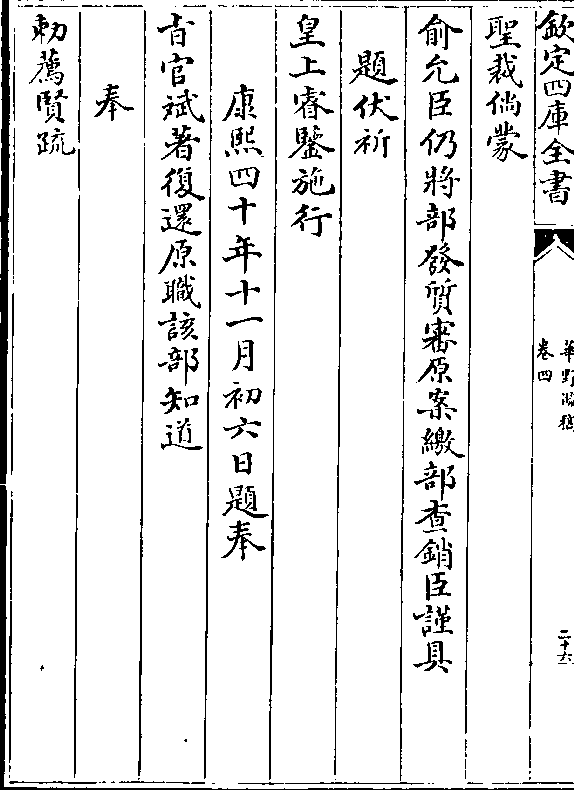 欽定四庫全書
華野疏稿
卷四
二十六
聖裁倘蒙
俞允臣仍將部發質審原案繳部查銷臣謹具
題伏祈
皇上睿鑒施行
康熙四十年十一月初六日題奉
㫖官斌著復還原職該部知道
奉
勅薦賢疏